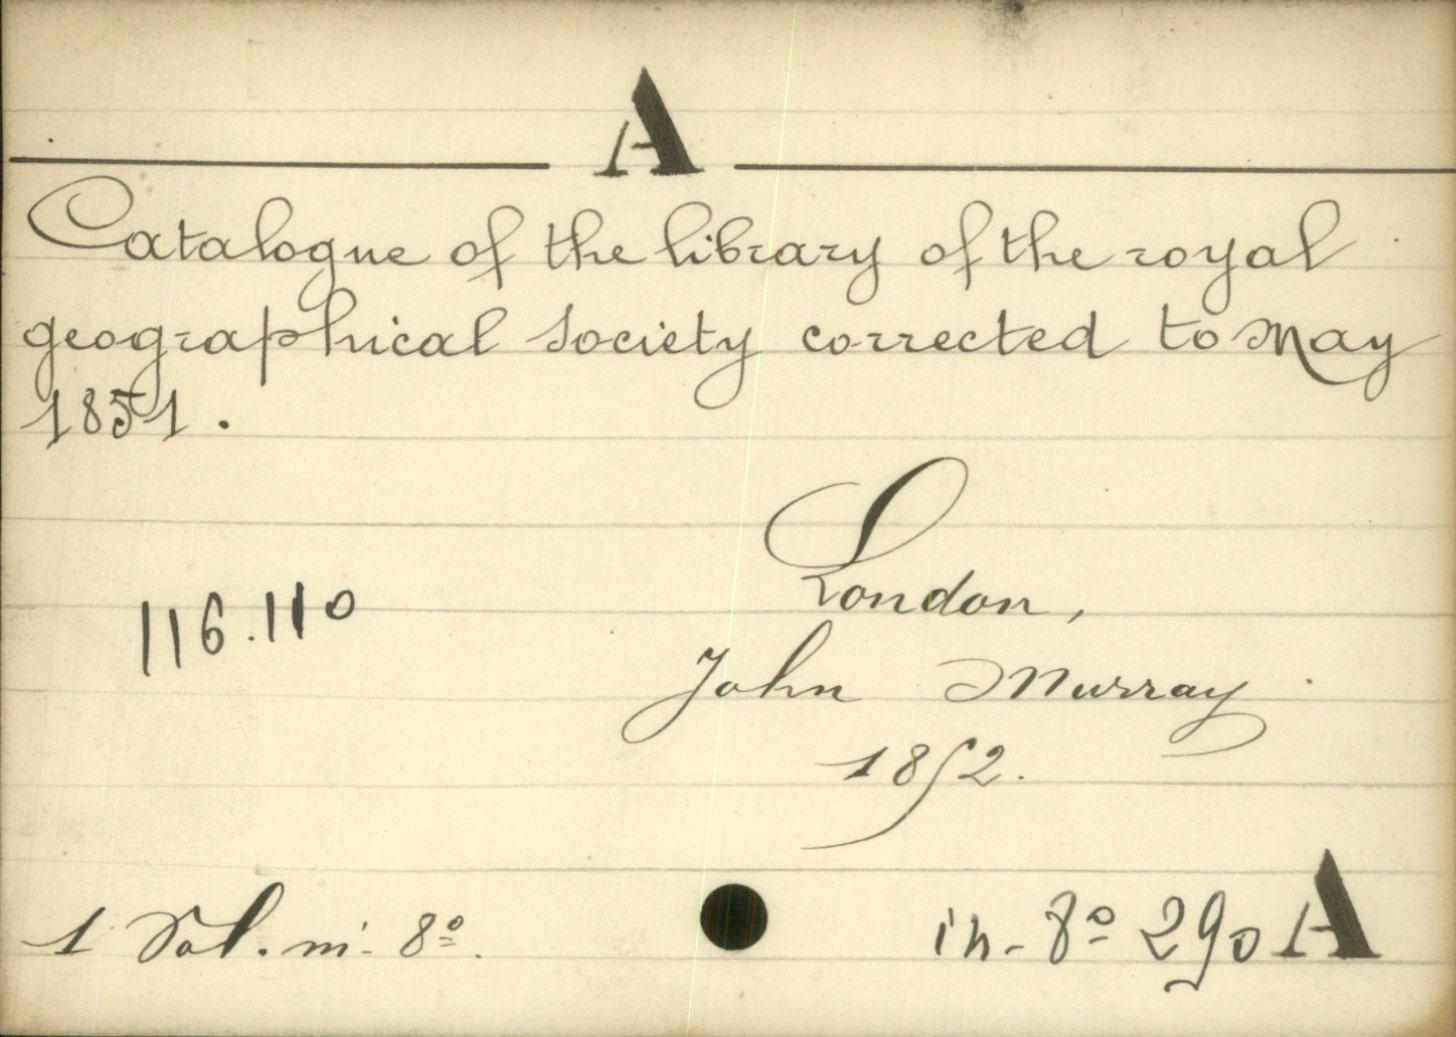 A
Catalogue of the library of the royal
geographical society corrected to May
1851.
London,
116.110
John Murray
1852.
1 Vol. in-8º.
in-8º 290 A